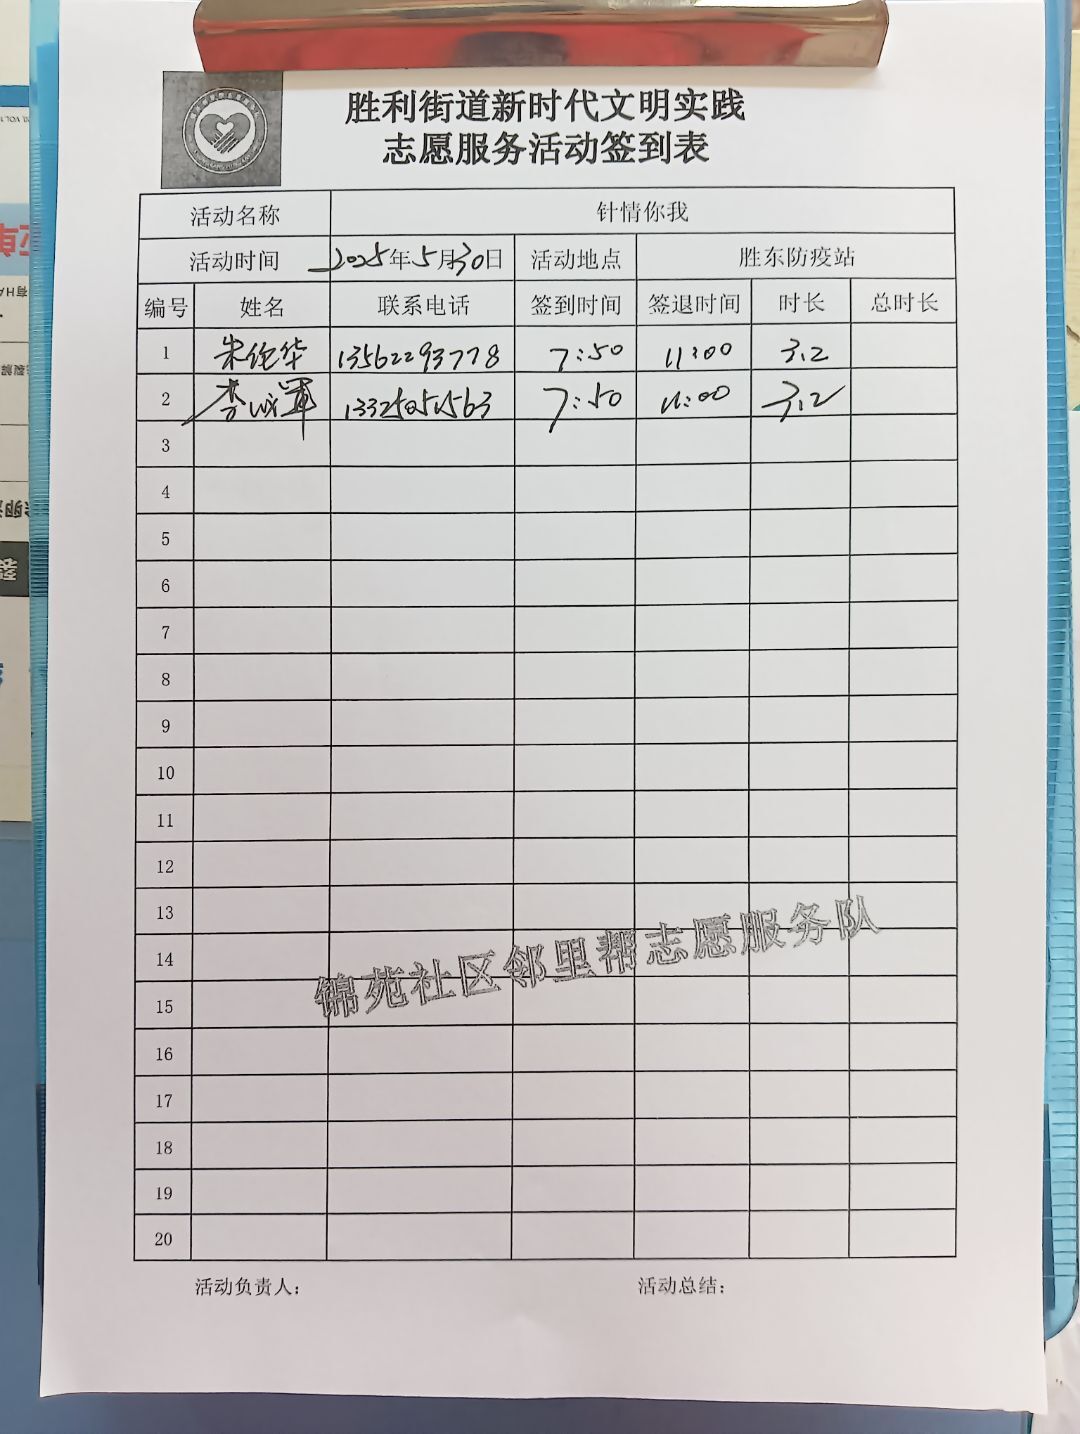 胜利街道新时代文明实践
志愿服务活动签到表
活动名称 针情你我
活动时间 2025年5月30日 活动地点 胜东防疫站
编号 姓名 联系电话 签到时间 签退时间 时长 总时长
1 朱绝华 13562293778 7:50 11:00 3.2
2 李成军 7:50 11:00 3.2
3
4
5
6
7
8
9
10
11
12
13
14
15
16
17
18
19
20
锦苑社区邻里帮志愿服务队
活动负责人： 活动总结：